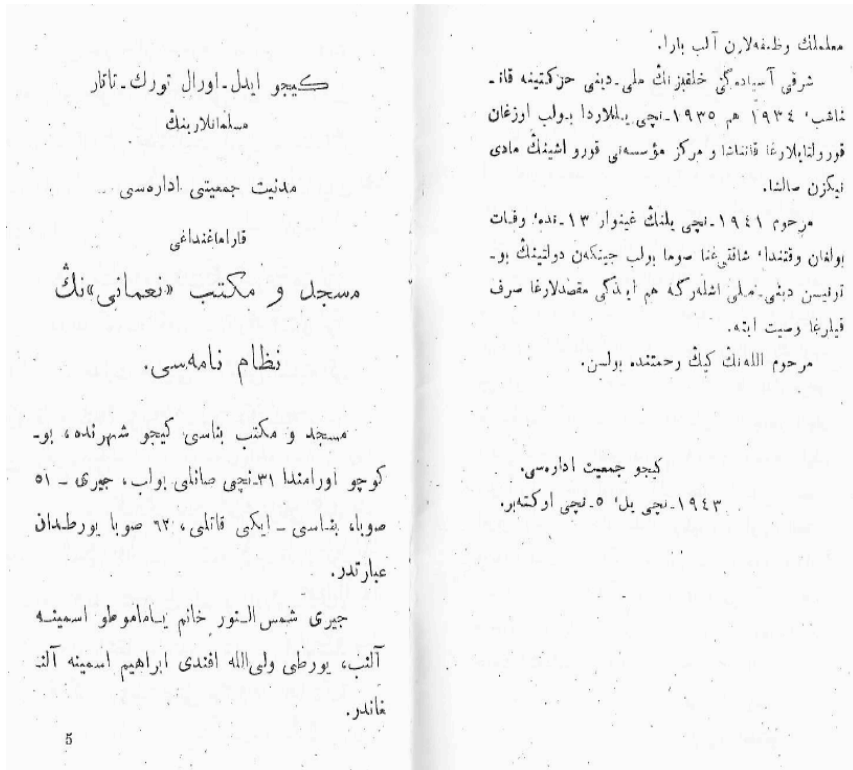 معلملك وظيفه‌لارن آلب بارا.
شرقی آسیاده‌گی خلقبزنڭ ملی-دینی حرکتینه قاتـ
ناشب٬ ١٩٣٤ هم ١٩٣٥-نچی یللاردا بولب اوزغان
قورولتایلارغا قاتناشا و مرکز مؤسسه‌نی قورو اشینڭ مادی
نیگزن صالشا.
مرحوم ١٩٤١-نچی یلنڭ غینوار ١٣-نده؛ وفات
بولغان وقتندا٬ شاقتی‌غنا صوما بولب جیتکه‌ن دولتینڭ بو-
تر‌نیسن دینی-ملی اشله‌رگه هم ایدگی مقصدلارغا صرف
قیلرغا وصیت ایته.
مرحوم الله‌نڭ کیڭ رحمتنده بولسن.
کیجو جمعیت اداره‌سی.
١٩٤٣-نچی یل٬ ٥-نچی اوکته‌بر.
کیجو ایدل-اورال تورك-تاتار
مسلمانلارینڭ
مدنیت جمعیتی اداره‌سی
قاراماغنداغی
مسجد و مکتب «نعمانی»نڭ
نظام نامه‌سی.
مسجد و مکتب بناسی کیجو شهرنده، بو-
کوچو اورامندا ٣١-نچی صانلی بولب، جیری – ٥١
صوبا، بناسی – ایکی قاتلی، ٦٢ صوبا یورطدان
عبارتدر.
جیری شمس‌النور خانم یاماموطو اسمینه
آلنب، یورطی ولی‌الله افندی ابراهیم اسمینه آلنـ
غاندر.
5